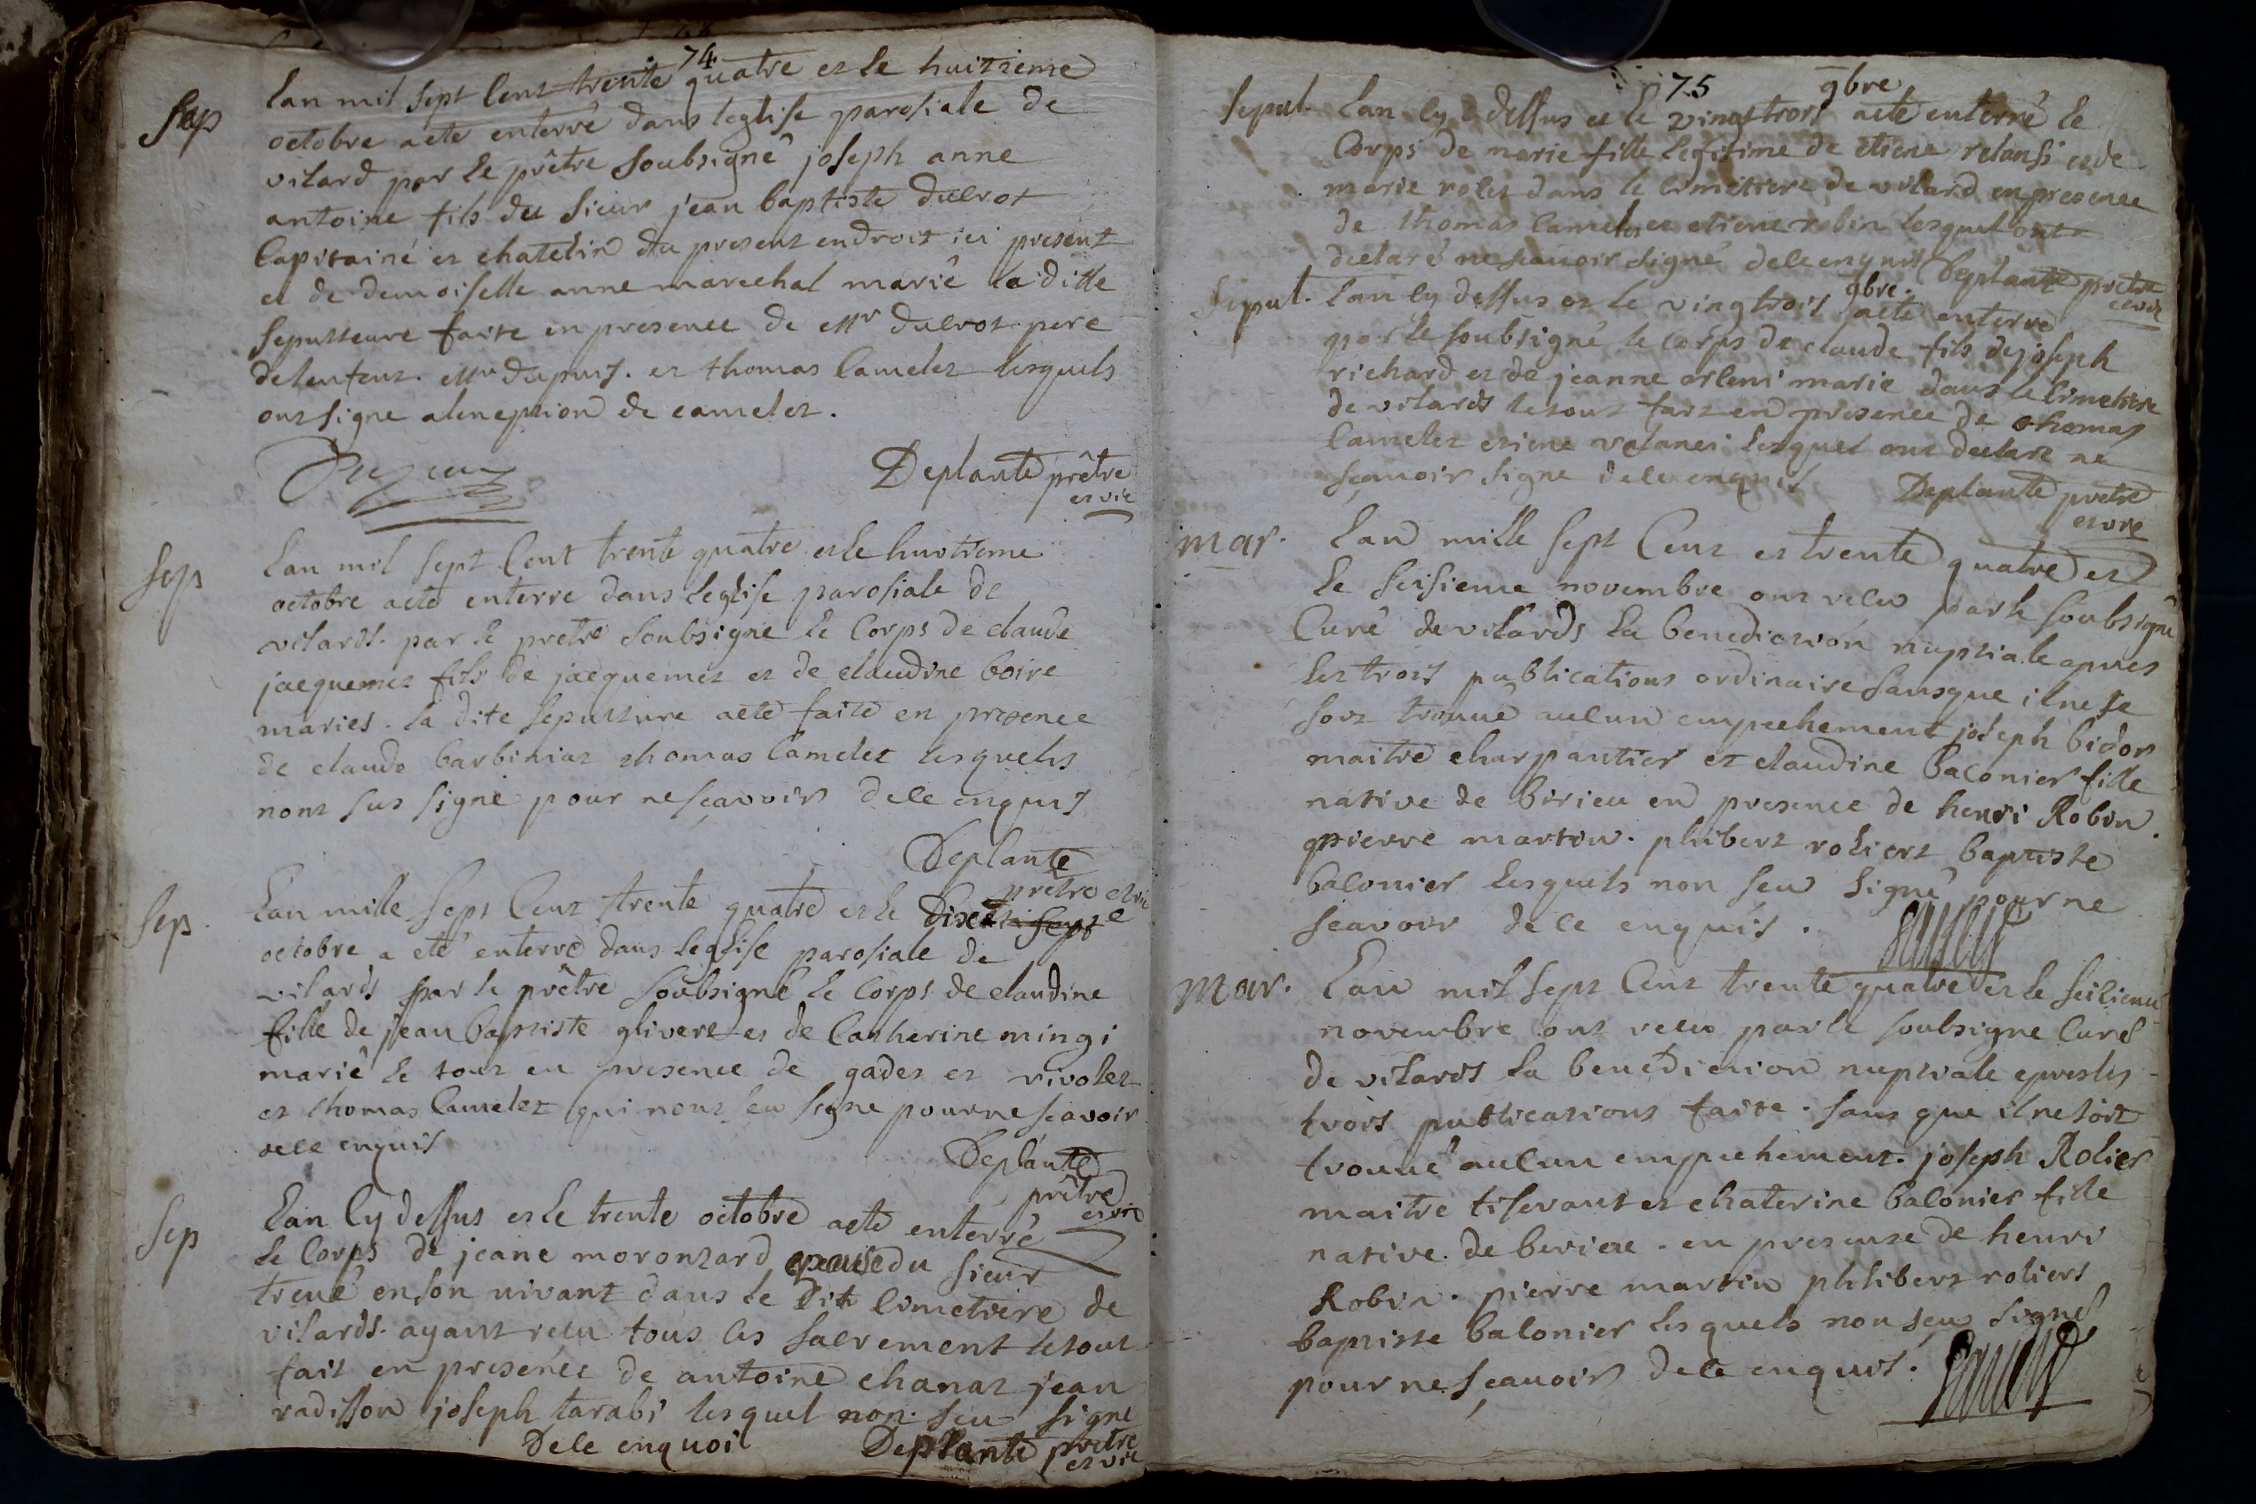 74
Sep
Lan mil sept Cent trente quatre et le huitieme
octobre aeté enterré dans leglise parosiale de
vilard par le prêtre soubsigné joseph anne
antoine fils du sieur jean baptiste ducrot
Capitaine et chatelin du present endroit ici present
et de demoiselle anne marechal marié la ditte
sepulteure faite en presence de Mr ducrot pere
delenfent. Mr dupuis. et thomas Camelet lesquels
ont signe aleneption de camelet.
Deplante prêtre
et vic
Sep
Lan mil sept Cent trente quatre et le huitieme
octobre aeté enterre dans leglise parosiale de
vilards. par le pretre soubsigne le Corps de claude
jacquemet fils de jacquemet et de claudine boire
maries. la dite sepulture aeté faite en presence
de claude barbiniat thomas Camelet lesquels
nont sus signe pour nesçavoir dece enquis
Deplante
prêtre et vic
Sep.
Lan mille sept Cent trente quatre et le
octobre a eté enterré dans leglise parosiale de
vilards par le prêtre soubsigné le Corps de claudine
fille de jean baptiste glivere et de Catherine mingi
marié le tout en presence de gadet et rivolet
et thomas Camelet qui nont seu signe pourne sçavoir
dece enquis
Deplante
prêtre
et vic
Sep
Lan Cy dessus et le trente octobre aeté enterré
le Corps de jeane moronzard epouse du sieur
treue enson vivant dans le dit Cimetiere de
vilards. ayant recu tous les sacrement letout
fait en presence de antoine chanat jean
radisson joseph tarabi lesquel non seu signe
dece enquoi Deplante pretre
et vic
75
Sepul. Lan Cy dessus et le vingt trois 9bre aeté enterré le
Corps de marie fille legitime de etiene relansi et de
marie rolet dans le Cimetiere de vilard en presence
de thomas Camelet et etiene robin lesquel ont
declaré ne scavoir signé dece enquis Deplante prêtre
et vic
Sepul. Lan Cy dessus et le vingtrois 9bre. aeté enterré
par le soubsigné le Corps de claude fils de joseph
richard et de jeanne orleni marie dans le Cimetiere
de vilards letout fait en presence de thomas
Camelet etiene relanci lesquel ont declare ne
sçavoir signe dece enquis Deplante pretre
et vic
mar. Lan mille sept Cent et trente quatre et
le seisieme novembre ont recu par le soubsigné
Curé de vilards la benediction nuptiale apres
les trois publications ordinaire sansque il nese
soit trouué aucun empechement joseph bidon
maitre charpantier et claudine baconier fille
native de birieu en presence de henri Robin.
pierre martin. philibert roliert baptiste
baconier lesquels non seu signé pour ne
scavoir dece enquis.
mar. Lan mil sept Cent trente quatre et le seisieme
novembre ont recu par le soubsigne Curé
de vilards la benediction nuptiale apres les
trois publications faite. sans que il ne soit
trouué aucun empechement. joseph Rolier
maitre tiserant et chaterine baconier fille
native. de beriere. en presense de henri
Robin. pierre martin philibert roliert
baptiste baconier lesquels non seu signé
pour ne sçauoir dece enquis.